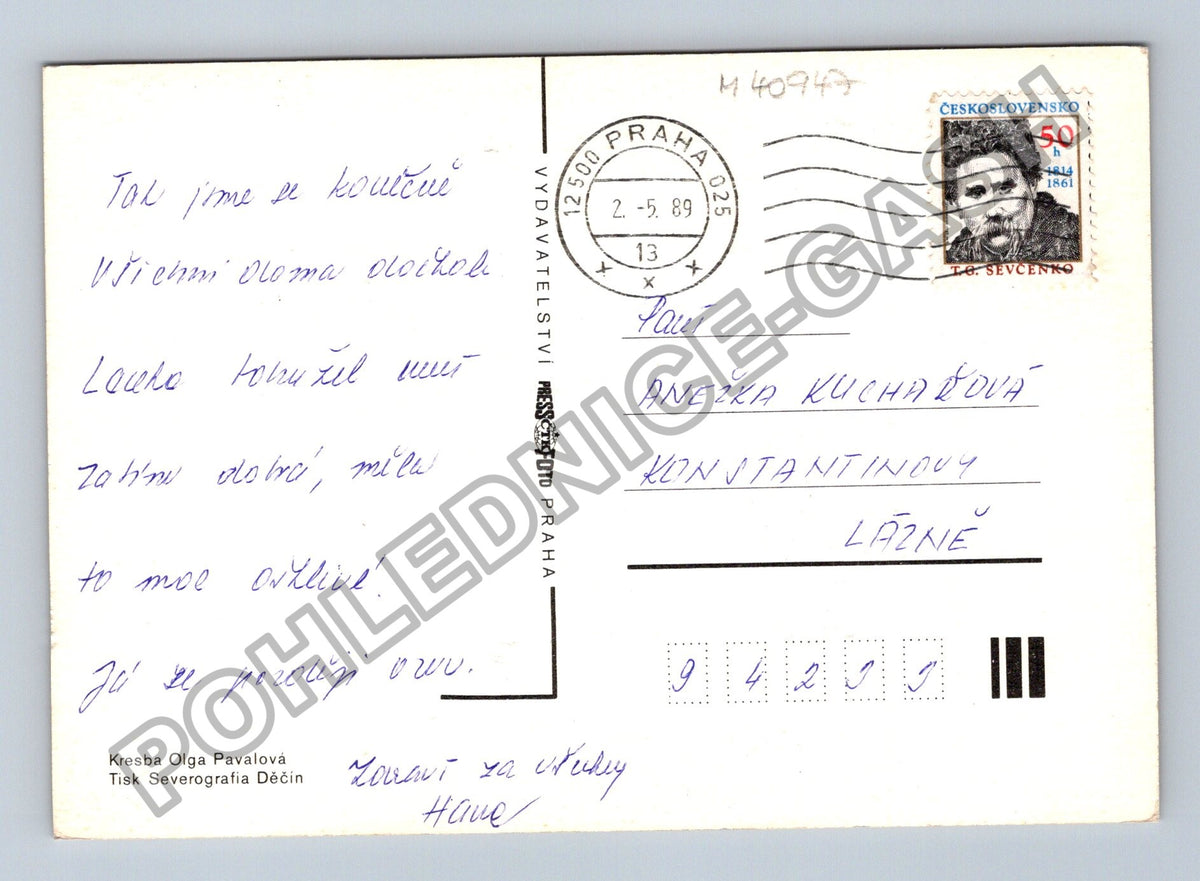 M 40947
ČESKOSLOVENSKO
50
h
1814
1861
T.G. ŠEVČENKO
12500 PRAHA 025
2. -5. 89
13
Tak jsme se konečně
všichni doma dočkali
Laďka
zatím dobrá, měla
to moc ošklivé!
Já se později ozvu.
Zdraví za všechny
Hana
VYDAVATELSTVÍ PRESSFOTO PRAHA
ČTK
Paní
ANEŽKA KUCHAŘOVÁ
KONSTANTINOVY
LÁZNĚ
9 4 2 9 9
Kresba Olga Pavalová
Tisk Severografia Děčín
POHLEDNICE-GASH